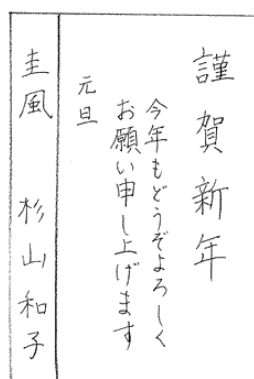 謹賀新年
今年もどうぞよろしく
お願い申し上げます
元旦
圭風 杉山和子